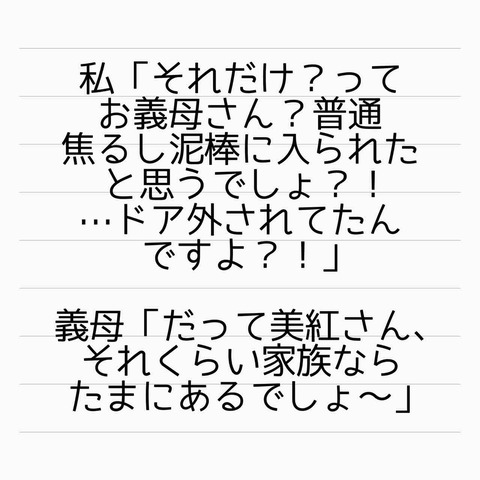 私「それだけ？って
お義母さん？普通
焦るし泥棒に入られた
と思うでしょ？！
…ドア外されてたん
ですよ？！」
義母「だって美紅さん、
それくらい家族なら
たまにあるでしょ～」